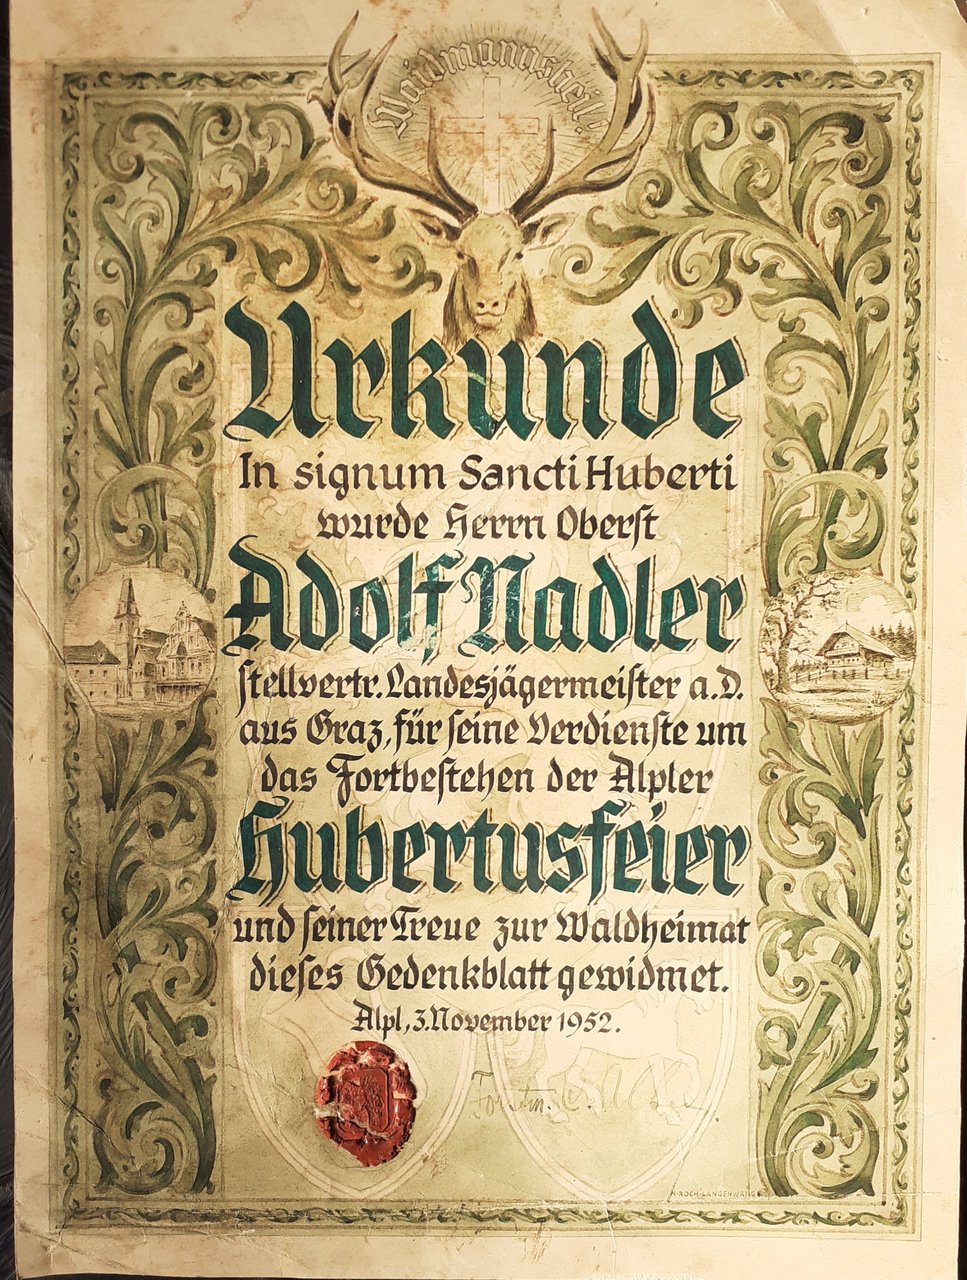 Waidmannsheil!
Urkunde
In signum Sancti Huberti
wurde Herrn Oberſt
Adolf Nadler
ſtellvertr. Landesjägermeiſter a.D.
aus Graz, für ſeine Verdienſte um
das Fortbeſtehen der Alpler
Hubertusfeier
und ſeiner Treue zur Waldheimat
dieſes Gedenkblatt gewidmet.
Alpl, 3. November 1952.
H. ROCH-LANGENWANG